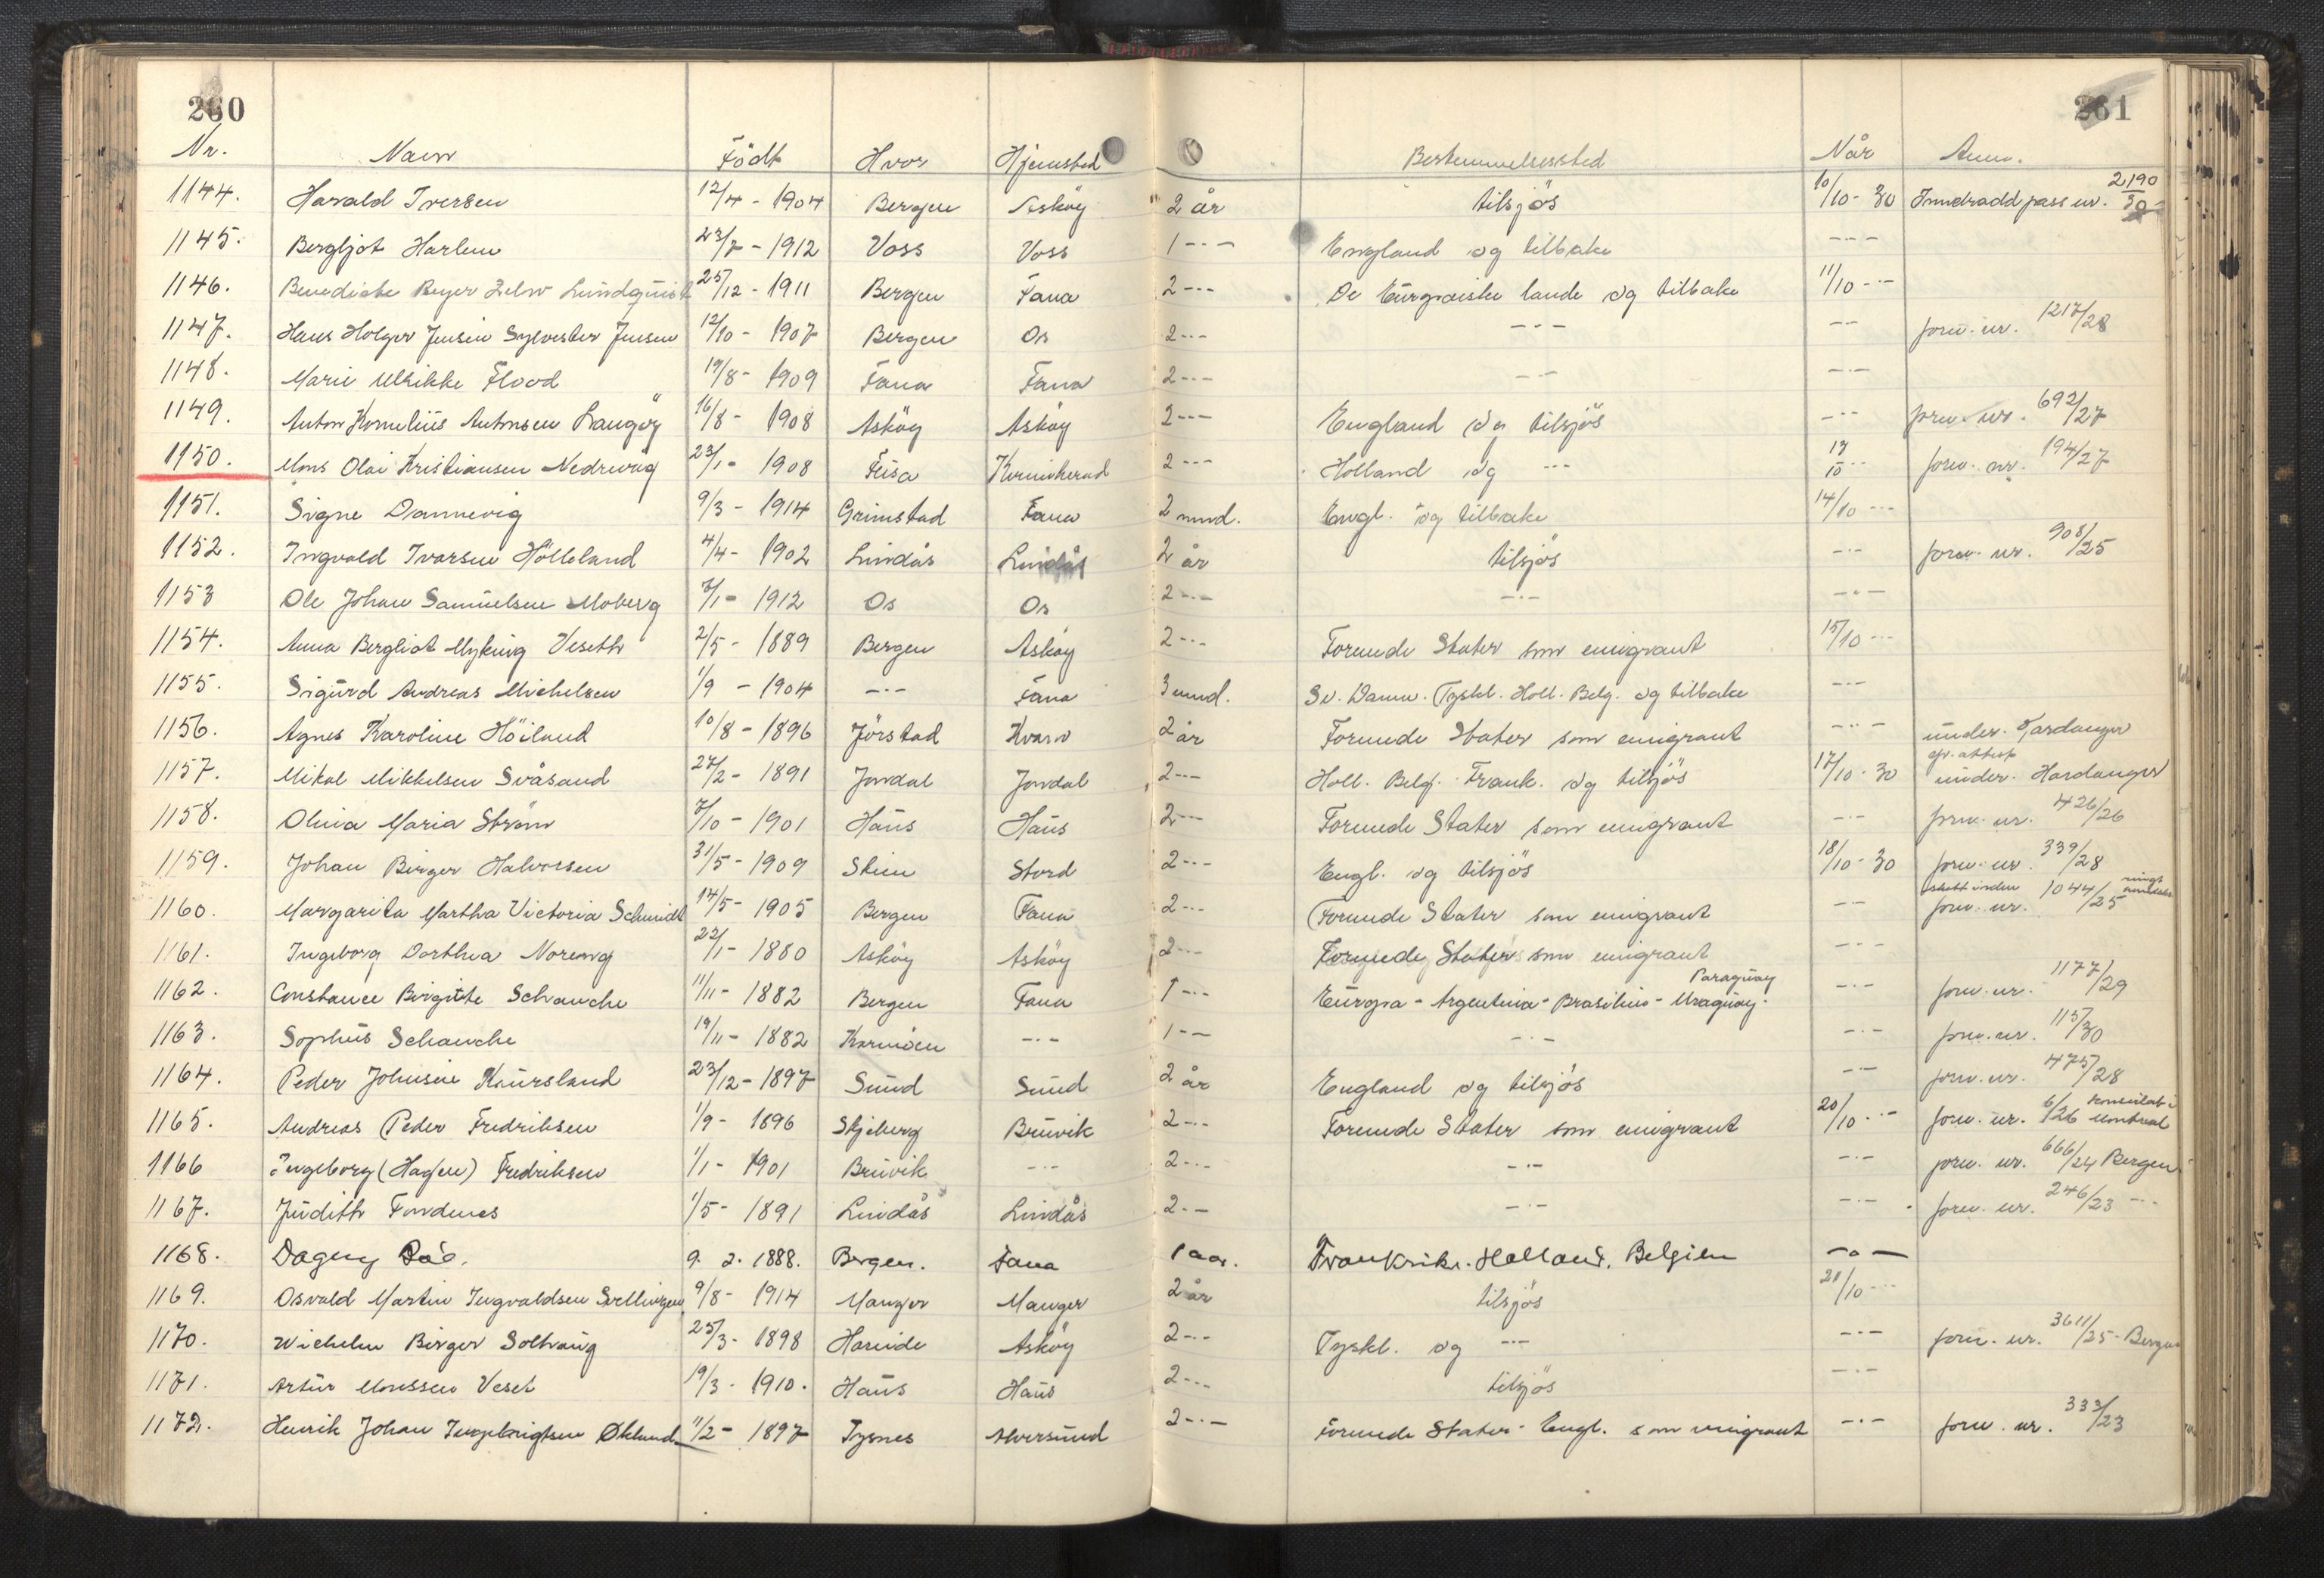 260 261
Nr. Navn Födt Hvor Hjemsted Bestemmelsessted Når Anm.
1144. Harald Iversen 12/4 - 1904 Bergen Asköy 2 år tilsjös 10/10 - 30 Inndradd pass nr. 2190/30
1145. Bergljot Harlem 23/7 - 1912 Voss Voss 1 -·- England og tilbake -·-
1146. Benedicte Beyer Lundquist 25/12 - 1911 Bergen Fana 2 -·- De Europæiske lande og tilbake 11/10 -·-
1147. Hans Holger Jensen Sylvester Jensen 12/10 - 1907 Bergen Os 2 -·- -·- -·- forn. nr. 1217/28
1148. Marie Ulrikke Flood 19/8 - 1909 Fana Fana 2 -·- -·- -·-
1149. Anton Kornelius Antonsen Langöy 16/8 - 1908 Asköy Asköy 2 -·- England og tilsjös -·- forn. nr. 692/27
1150. Mons Olai Kristiansen Nedrevåg 23/1 - 1908 Fusa Kvinnherad 2 -·- Holland og -·- 13/10 -·- forn. nr. 194/27
1151. Signe Dannevig 9/3 - 1914 Grimstad Fana 2 mnd. Engl. og tilbake 14/10 -·-
1152. Ingvald Ivarsen Hölleland 4/4 - 1902 Lindås Lindås 2 år tilsjös -·- forn. nr. 908/25
1153 Ole Johan Samuelsen Moberg 7/1 - 1912 Os Os 2 -·- -·- -·-
1154. Anna Bergliot Myking Veseth 2/5 - 1889 Bergen Asköy 2 -·- Forende Stater som emigrant 15/10 -·-
1155. Sigurd Andreas Michelsen 1/9 - 1904 -·- Fana 3 mnd. Sv. Danm. Tyskl. Holl. Belg. og tilbake -·-
1156. Agnes Karoline Höiland 10/8 - 1896 Jörstad Kvam 2 år Forende Stater som emigrant -·- under. Hardanger
1157. Mikal Mikkelsen Svåsand 27/2 - 1891 Jondal Jondal 2 -·- Holl. Belg. Frank. og tilsjös 17/10 - 30 under. Hardanger
1158. Olina Maria Ström 7/10 - 1901 Haus Haus 2 -·- Forende Stater som emigrant -·- forn. nr. 426/26
1159. Johan Birger Halvorsen 31/5 - 1909 Skien Stord 2 -·- Engl. og tilsjös 18/10 - 30 forn. nr. 339/28
1160. Margarita Martha Victoria Schmidt 14/5 - 1905 Bergen Fana 2 -·- Forende Stater som emigrant -·- forn. nr. 1044/25
1161. Ingeborg Dorthea Noreng 22/1 - 1880 Asköy Asköy 2 -·- Forende Stater som emigrant -·-
1162. Constance Birgitte Schanche 11/11 - 1882 Bergen Fana 1 -·- Europa - Argentina - Brasilien - Uruguay - Paraguay -·- forn. nr. 1177/29
1163. Sophus Schanche 19/11 - 1882 Karmöen -·- 1 -·- -·- -·- forn. nr. 115/30
1164. Peder Johnsen Kaursland 23/12 - 1897 Sund Sund 2 år England og tilsjös -·- forn. nr. 475/28
1165. Andreas Peder Fredriksen 1/9 - 1896 Skjeberg Bruvik 2 -·- Forende Stater som emigrant 20/10 -·- forn. nr. 6/1 26 konsulat i Montreal
1166 Ingeborg (Hagen) Fredriksen 1/1 - 1901 Bruvik -·- 2 -·- -·- -·- forn. nr. 666/24 Bergen
1167. Judith Fondenes 1/5 - 1891 Lindås Lindås 2 -·- -·- -·- forn. nr. 246/23 -·-
1168. Dagny 9. 2. 1888. Bergen. Fana 1 aar. Frankrike. Holland. Belgien -·-
1169. Osvald Martin Ingvaldsen Sellingen 9/8 - 1914 Manger Manger 2 år tilsjös 21/10 -·-
1170. Wichelm Birger Solhaug 25/3 - 1898 Hareide Asköy 2 -·- Tyskl. og -·- -·- forn. nr. 3611/25 - Bergen
1171. Artur Monssen Veset 19/3 - 1910. Haus Haus 2 -·- tilsjös -·-
1172. Henrik Johan Ingebrigtsen Økland 11/2 - 1897 Tysnes Alversund 2 -·- Forende Stater - Engl. som emigrant -·- forn. nr. 333/23